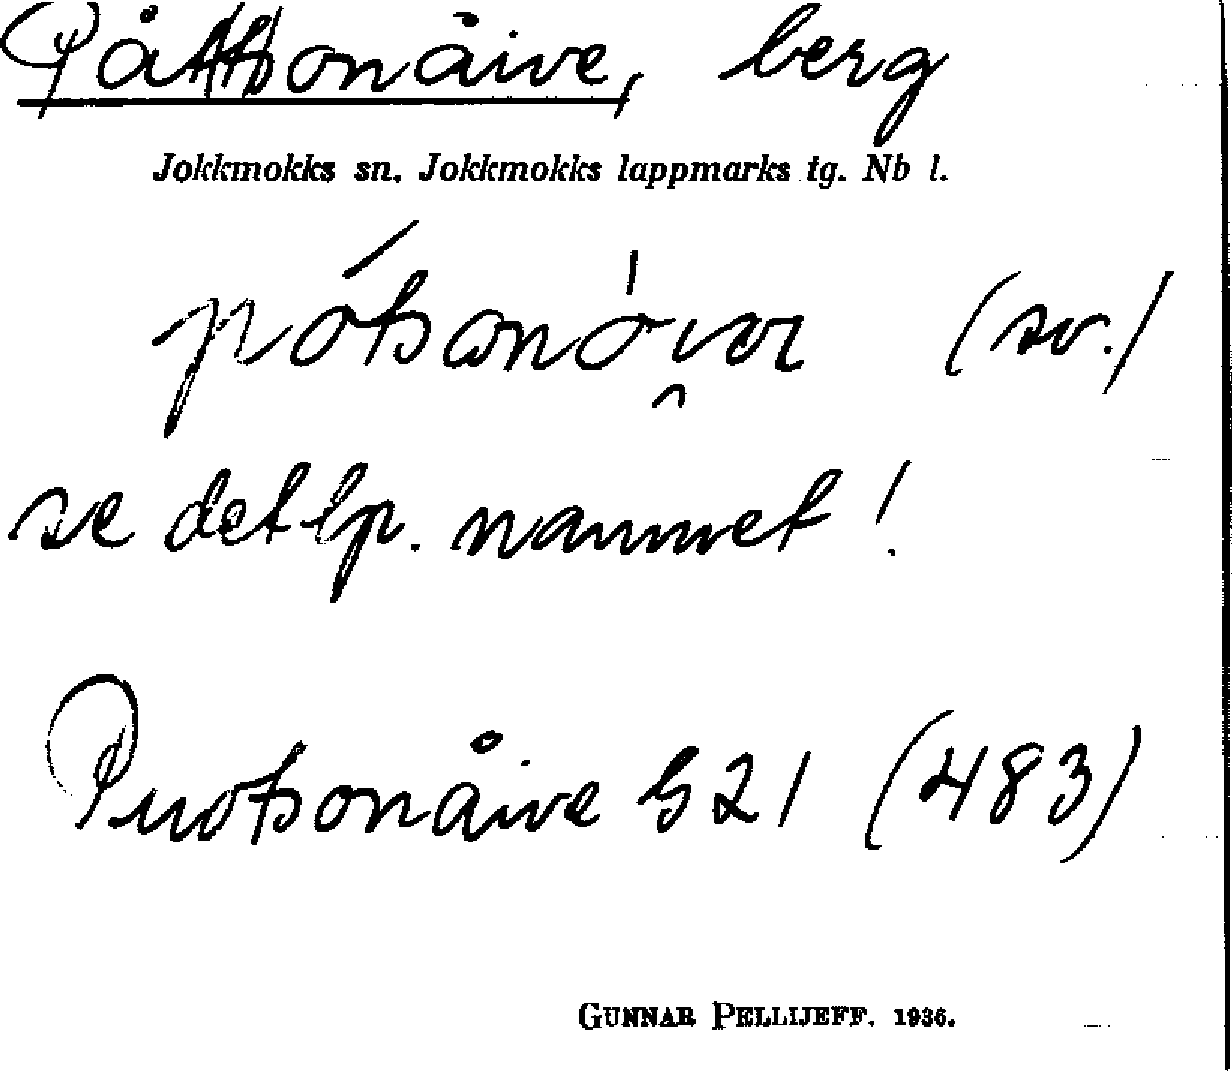 Påtsonåive, berg
Jokkmokks sn. Jokkmokks lappmarks tg. Nb l.
(sv.)
se det lp. namnet!
Puotsonåive G 21 (483)
GUNNAR PELLIJEFF. 1936.